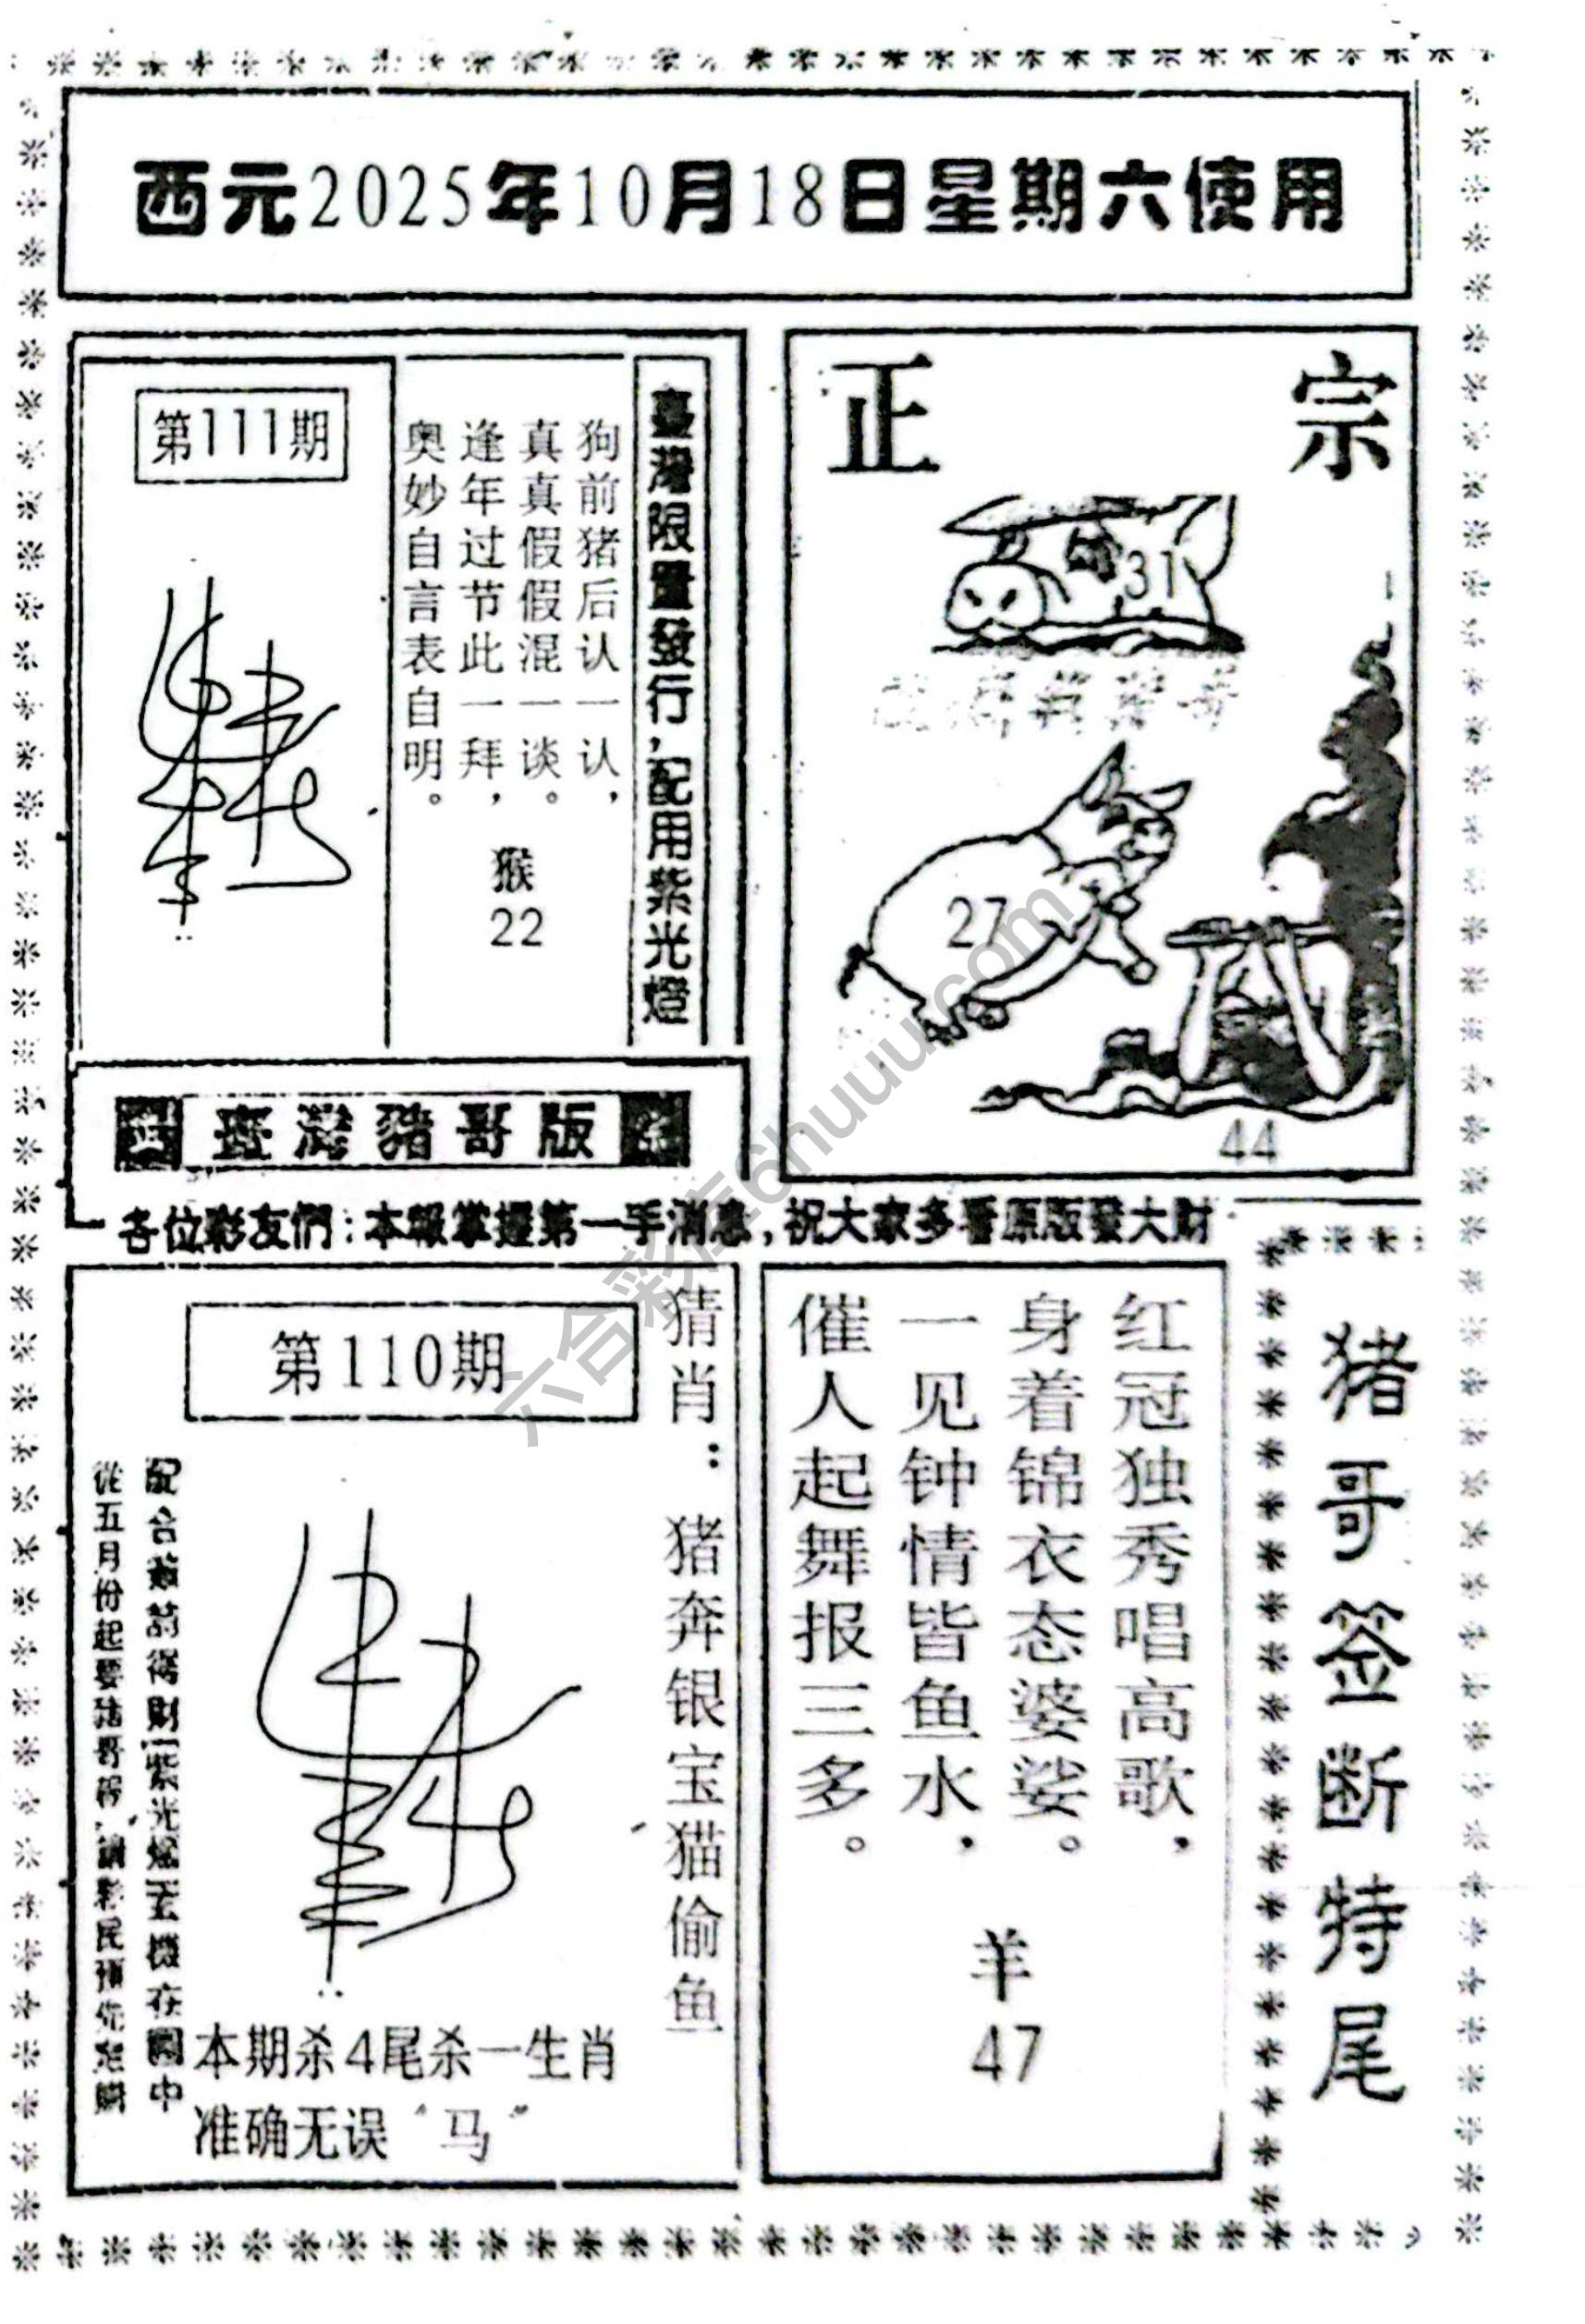 西元2025年10月18日星期六使用
第111期
臺灣限量發行，配用紫光燈
狗前猪后认一认，
真真假假混一谈。
逢年过节此一拜，
奥妙自言表自明。
猴
22
正宗
31
27
44
臺灣豬哥版
各位彩友們：本報掌握第一手消息，祝大家多看原版發大財
第110期
猜肖：猪奔银宝猫偷鱼
本期杀4尾杀一生肖
准确无误“马”
红冠独秀唱高歌，
身着锦衣态婆娑。
一见钟情皆鱼水，
催人起舞报三多。
羊
47
猪哥签断特尾
六合彩库6huuu.com